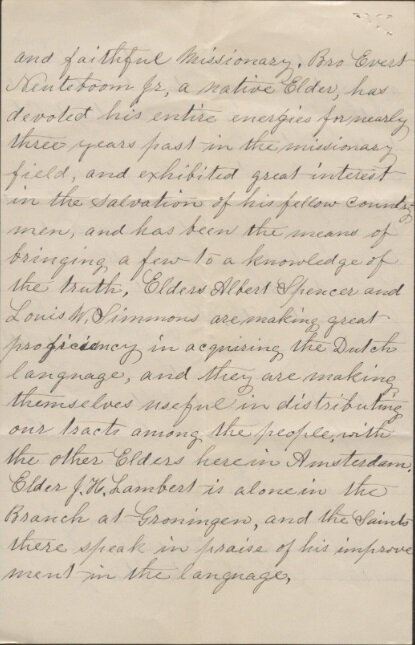 and faithful Missionary. Bro Evert
Neuteboom Jr, a native Elder, has
devoted his entire energies for nearly
three years past in the missionary
field, and exhibited great interest
in the salvation of his fellow country
men, and has been the means of
bringing a few to a knowledge of
the truth. Elders Albert Spencer and
Louis W. Simmons are making great
proficiency in acquiring the Dutch
language, and they are making
themselves useful in distributing
our tracts among the people, with
the other Elders here in Amsterdam.
Elder J. H. Lambert is alone in the
Branch at Groningen, and the Saints
there speak in praise of his improve
ment in the language.